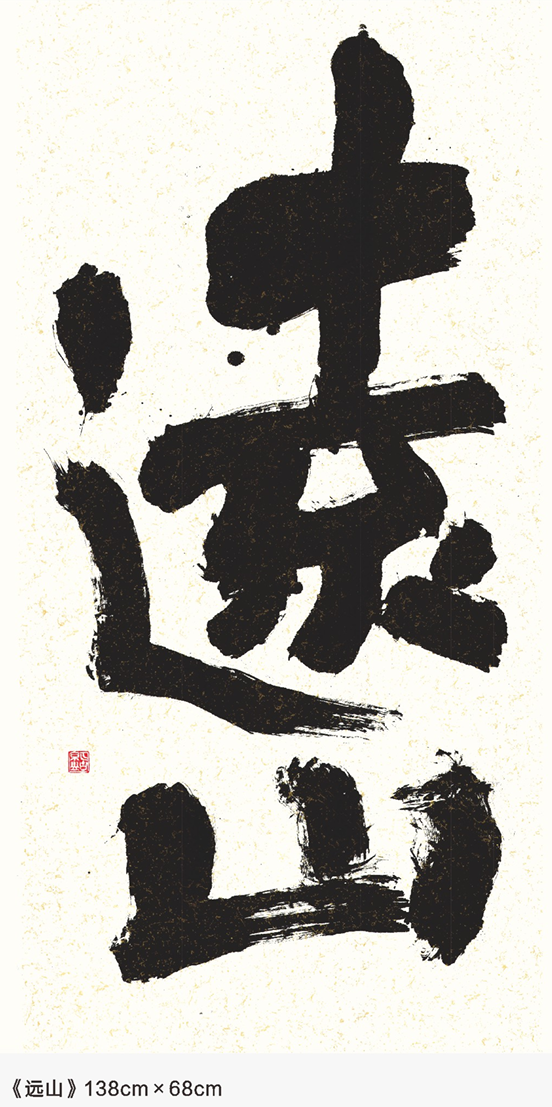 遠
山
《远山》138cm×68cm